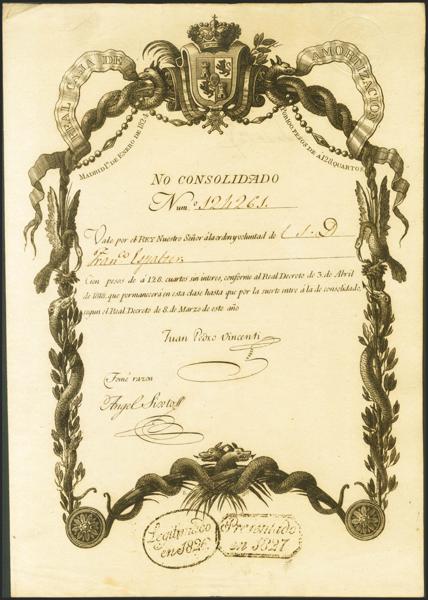 REAL CAJA DE AMORTIZACION
MADRID 1º DE ENERO DE 1824
100 PESOS DE A 128 QUARTOS
NO CONSOLIDADO
Num.º 124261.
Vale por el REY Nuestro Señor á la orden y voluntad de
Cien pesos de á 128. cuartos sin interes, conforme al Real Decreto de 3. de Abril
de 1818, que permanecerá en esta clase hasta que por la suerte entre á la de consolidado,
segun el Real Decreto de 8. de Marzo de este año
Juan Pedro Vincenti
Tomé razon
Angel Sixto
Legitimado
en 1826.
Presentado
en 1827